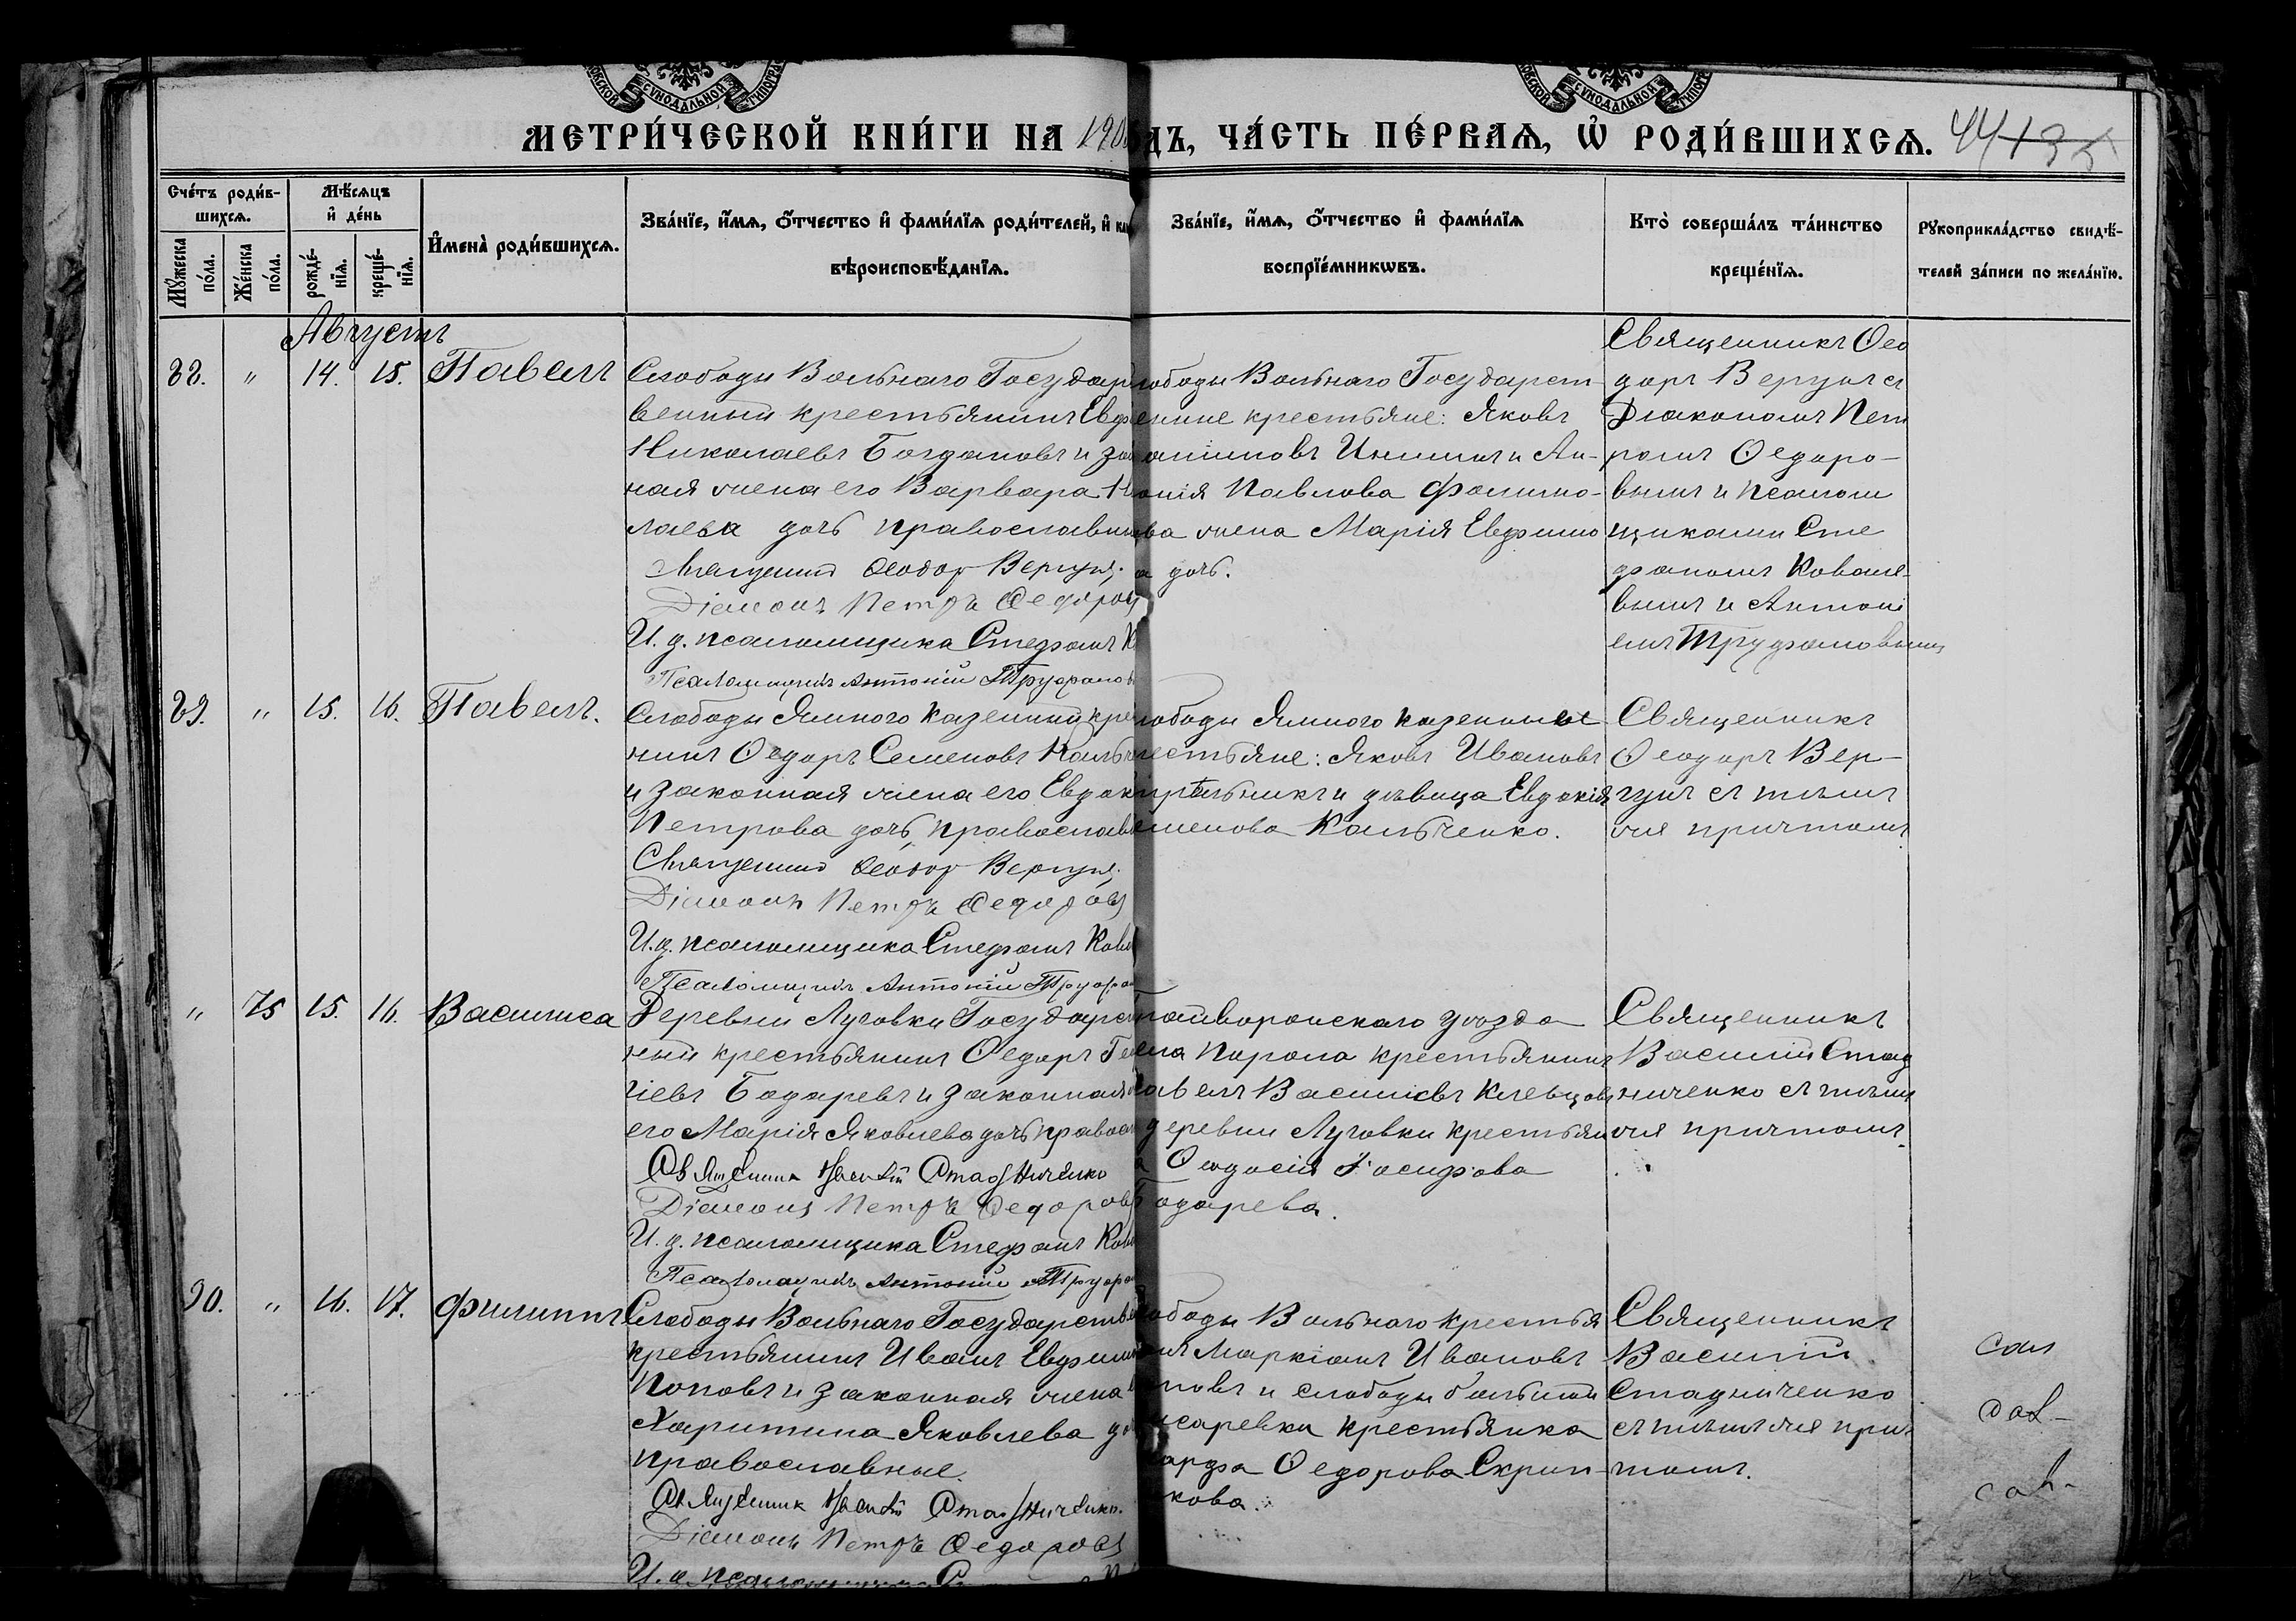 МЕТРИ́ЧЕСКОЙ КНИ́ГИ НА 190 ДЪ, ЧА́СТЬ ПЕ́РВАѦ, Ѡ҆ РОДИ́ВШИХСѦ.
Сче́тъ роди́в-
шихсѧ.
Мꙋ́жеска по́ла.
Же́нска по́ла.
Мѣ́сѧцъ
и҆ де́нь
рожде́-
нїѧ.
креще́-
нїѧ.
И҆мена̀ роди́вшихсѧ.
Зва́нїе, и҆́мѧ, ѻ҆́тчество и҆ фами́лїѧ роди́телей, и҆
вѣроисповѣ́данїѧ.
Зва́нїе, и҆́мѧ, ѻ҆́тчество и҆ фами́лїѧ
воспрїе́мникѡвъ.
Кто̀ соверша́лъ та́инство
креще́нїѧ.
Рꙋкоприкла́дство свидѣ́-
телей за́писи по жела́нїю.
Августъ
88. " 14. 15. Павелъ
Слободы Вольнаго Государ
венный крестьянинъ Евф
Николаевъ Богдановъ и за
ная жена его Варвара Н
лаева дочь православны
Священник Феодор Вергун;
Діаконъ Петръ Федоров
И. д. псаломщика Стефанъ К
Псаломщикъ Антоній Труфанов
лободы Вольнаго Государст-
енные крестьяне: Яковъ
Ан-
онія Павлова Фомино-
ва жена Марія Евфимо
а дочь.
Священникъ Фео
доръ Вергунъ съ
Діакономъ Пет
ромъ Федоро-
вымъ и псалом
щиками Сте
фаномъ Ковале-
вымъ и Антоні
емъ Труфановымъ
89. " 15. 16. Павелъ.
Слободы Ямного казенный кре
нинъ Федоръ Семеновъ Кальч
и законная жена его Евдок
Петрова дочь, православ
Священник Феодор Вергун;
Діаконъ Петръ Федоровъ
И. д. псаломщика Стефанъ Кова
Псаломщикъ Антоній Труфан
лободы Ямного казенные
рестьяне: Яковъ Ивановъ
и дѣвица Евдокія
еменова Кальченко.
Священникъ
Феодоръ Вер-
гунъ съ тѣмъ
же причтомъ.
" 75 15. 16. Василиса
Деревни Луговки Государст
ный крестьянинъ Федоръ Ге
гіевъ Бодаревъ и законная
его Марія Яковлева дочь правосл
Священник Василій Стадниченко
Діаконъ Петръ Федоровъ
И. д. псаломщика Стефанъ Кова
Псаломщикъ Антоній Труфан
Грайворонскаго уѣзда
ела Пороза крестьянинъ
Павелъ Василіевъ Клевцовъ
деревни Луговки крестьян
а Феодосія Іосифова
Бодарева.
Священникъ
Василій Стад
ниченко съ тѣмъ
же причтомъ.
90. " 16. 17. Филиппъ
Слободы Вольнаго Государствен
крестьянинъ Иванъ Евфим
Поповъ и законная жена
Харитина Яковлева до
православные.
Священник Василій Стадниченко.
Діаконъ Петръ Федоровъ
И. д. псаломщика С
лободы Вольнаго крестья
нинъ Маркіанъ Ивановъ
Поповъ и слободы Большой
исаревки крестьянка
арфа Федорова Скрип-
кова.
Священникъ
Василій
Стадниченко
съ тѣмъ же при-
чтомъ.